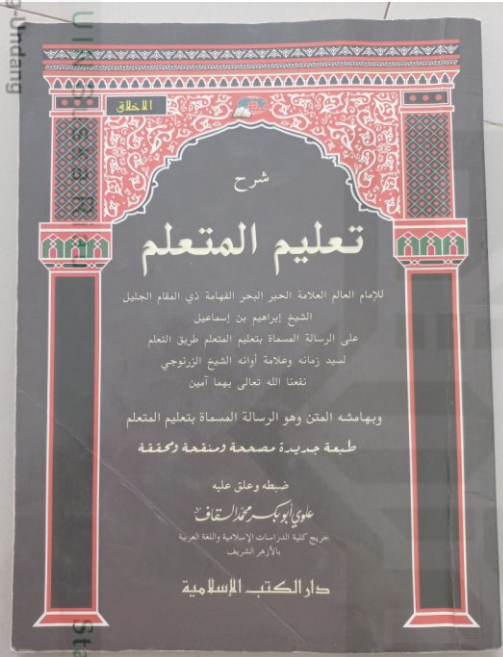 الأخلاق
شرح
تعليم المتعلم
للإمام العالم العلامة الحبر البحر الفهامة ذي المقام الجليل
الشيخ إبراهيم بن إسماعيل
على الرسالة المسماة بتعليم المتعلم طريق التعلم
لسيد زمانه وعلامة أوانه الشيخ الزرنوجي
نفعنا الله تعالى بهما آمين
وبهامشه المتن وهو الرسالة المسماة بتعليم المتعلم
طبعة جديدة مصححة ومنقحة ومحققة
ضبطه وعلق عليه
علوي أبو بكر محمد السقاف
خريج كلية الدراسات الإسلامية واللغة العربية
بالأزهر الشريف
دار الكتب الإسلامية
g-Undang
UIN Suska Riau
Sta